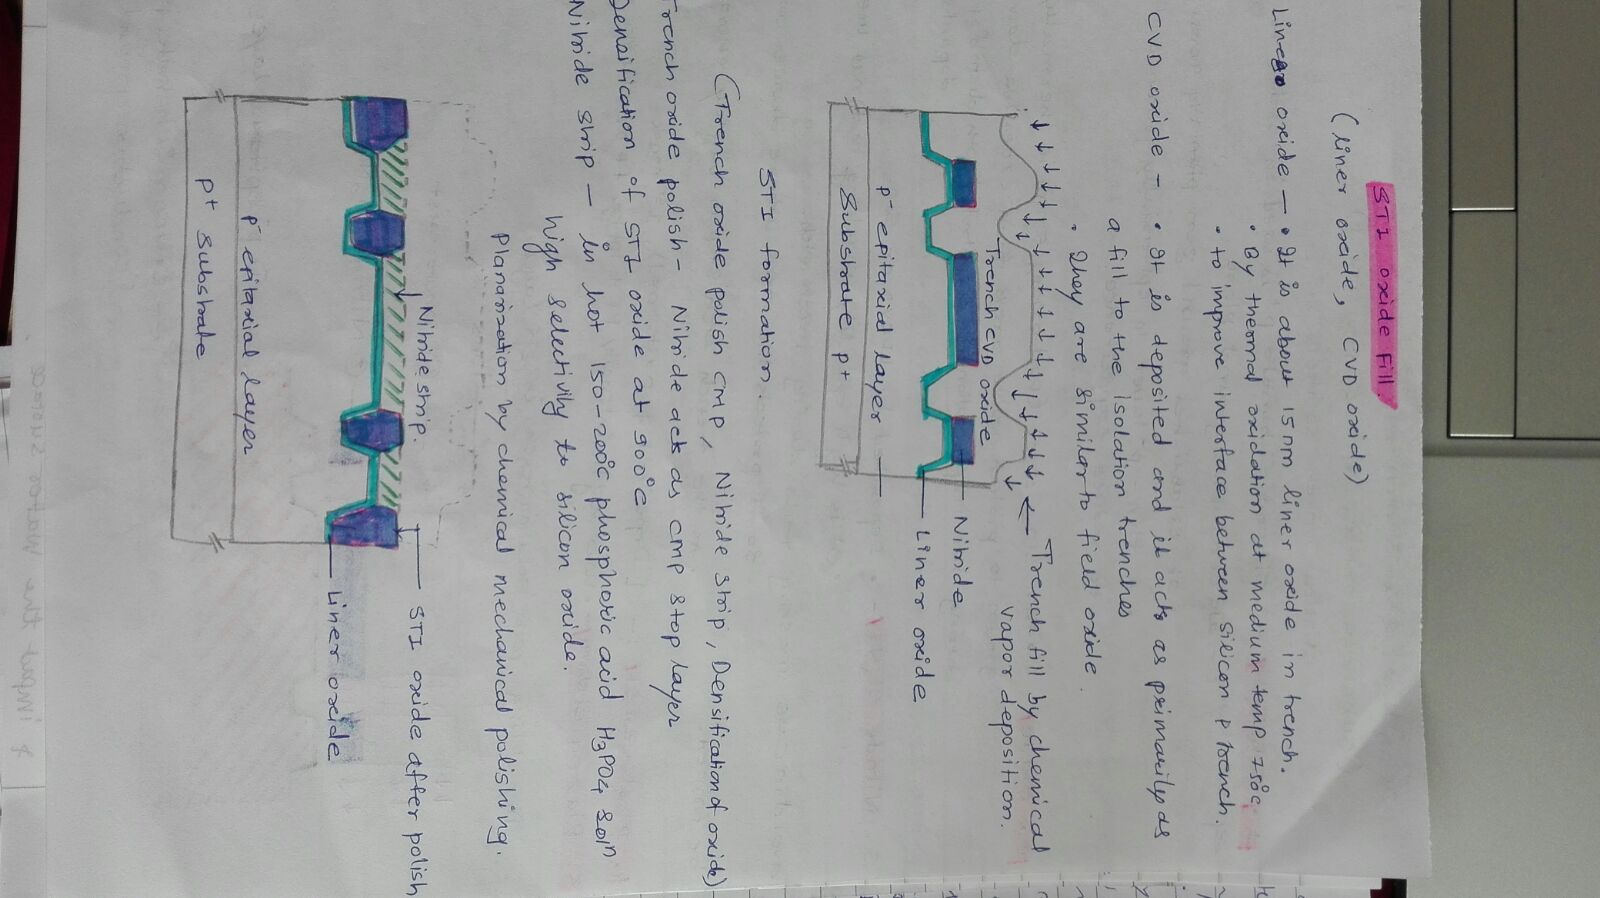 STI oxide Fill.
(liner oxide, CVD oxide)
Liner oxide - • It is about 15nm liner oxide in trench.
• By thermal oxidation at medium temp 750°c
• to improve interface between silicon & trench.
CVD oxide - • It is deposited and it acts as primarily as
a fill to the isolation trenches
• They are similar to field oxide.
Trench fill by chemical
vapor deposition.
Trench CVD oxide
Nitride
Liner oxide
p- epitaxial layer
Substrate p+
STI formation.
(Trench oxide polish CMP, Nitride strip, Densification of oxide)
Trench oxide polish - Nitride acts as CMP stop layer
Densification of STI oxide at 900°c
Nitride strip - in hot 150-200°c phosphoric acid H3PO4 soln
high selectivity to silicon oxide.
Planarization by chemical mechanical polishing.
Nitride strip.
STI oxide after polish
Liner oxide
p- epitaxial layer
p+ substrate